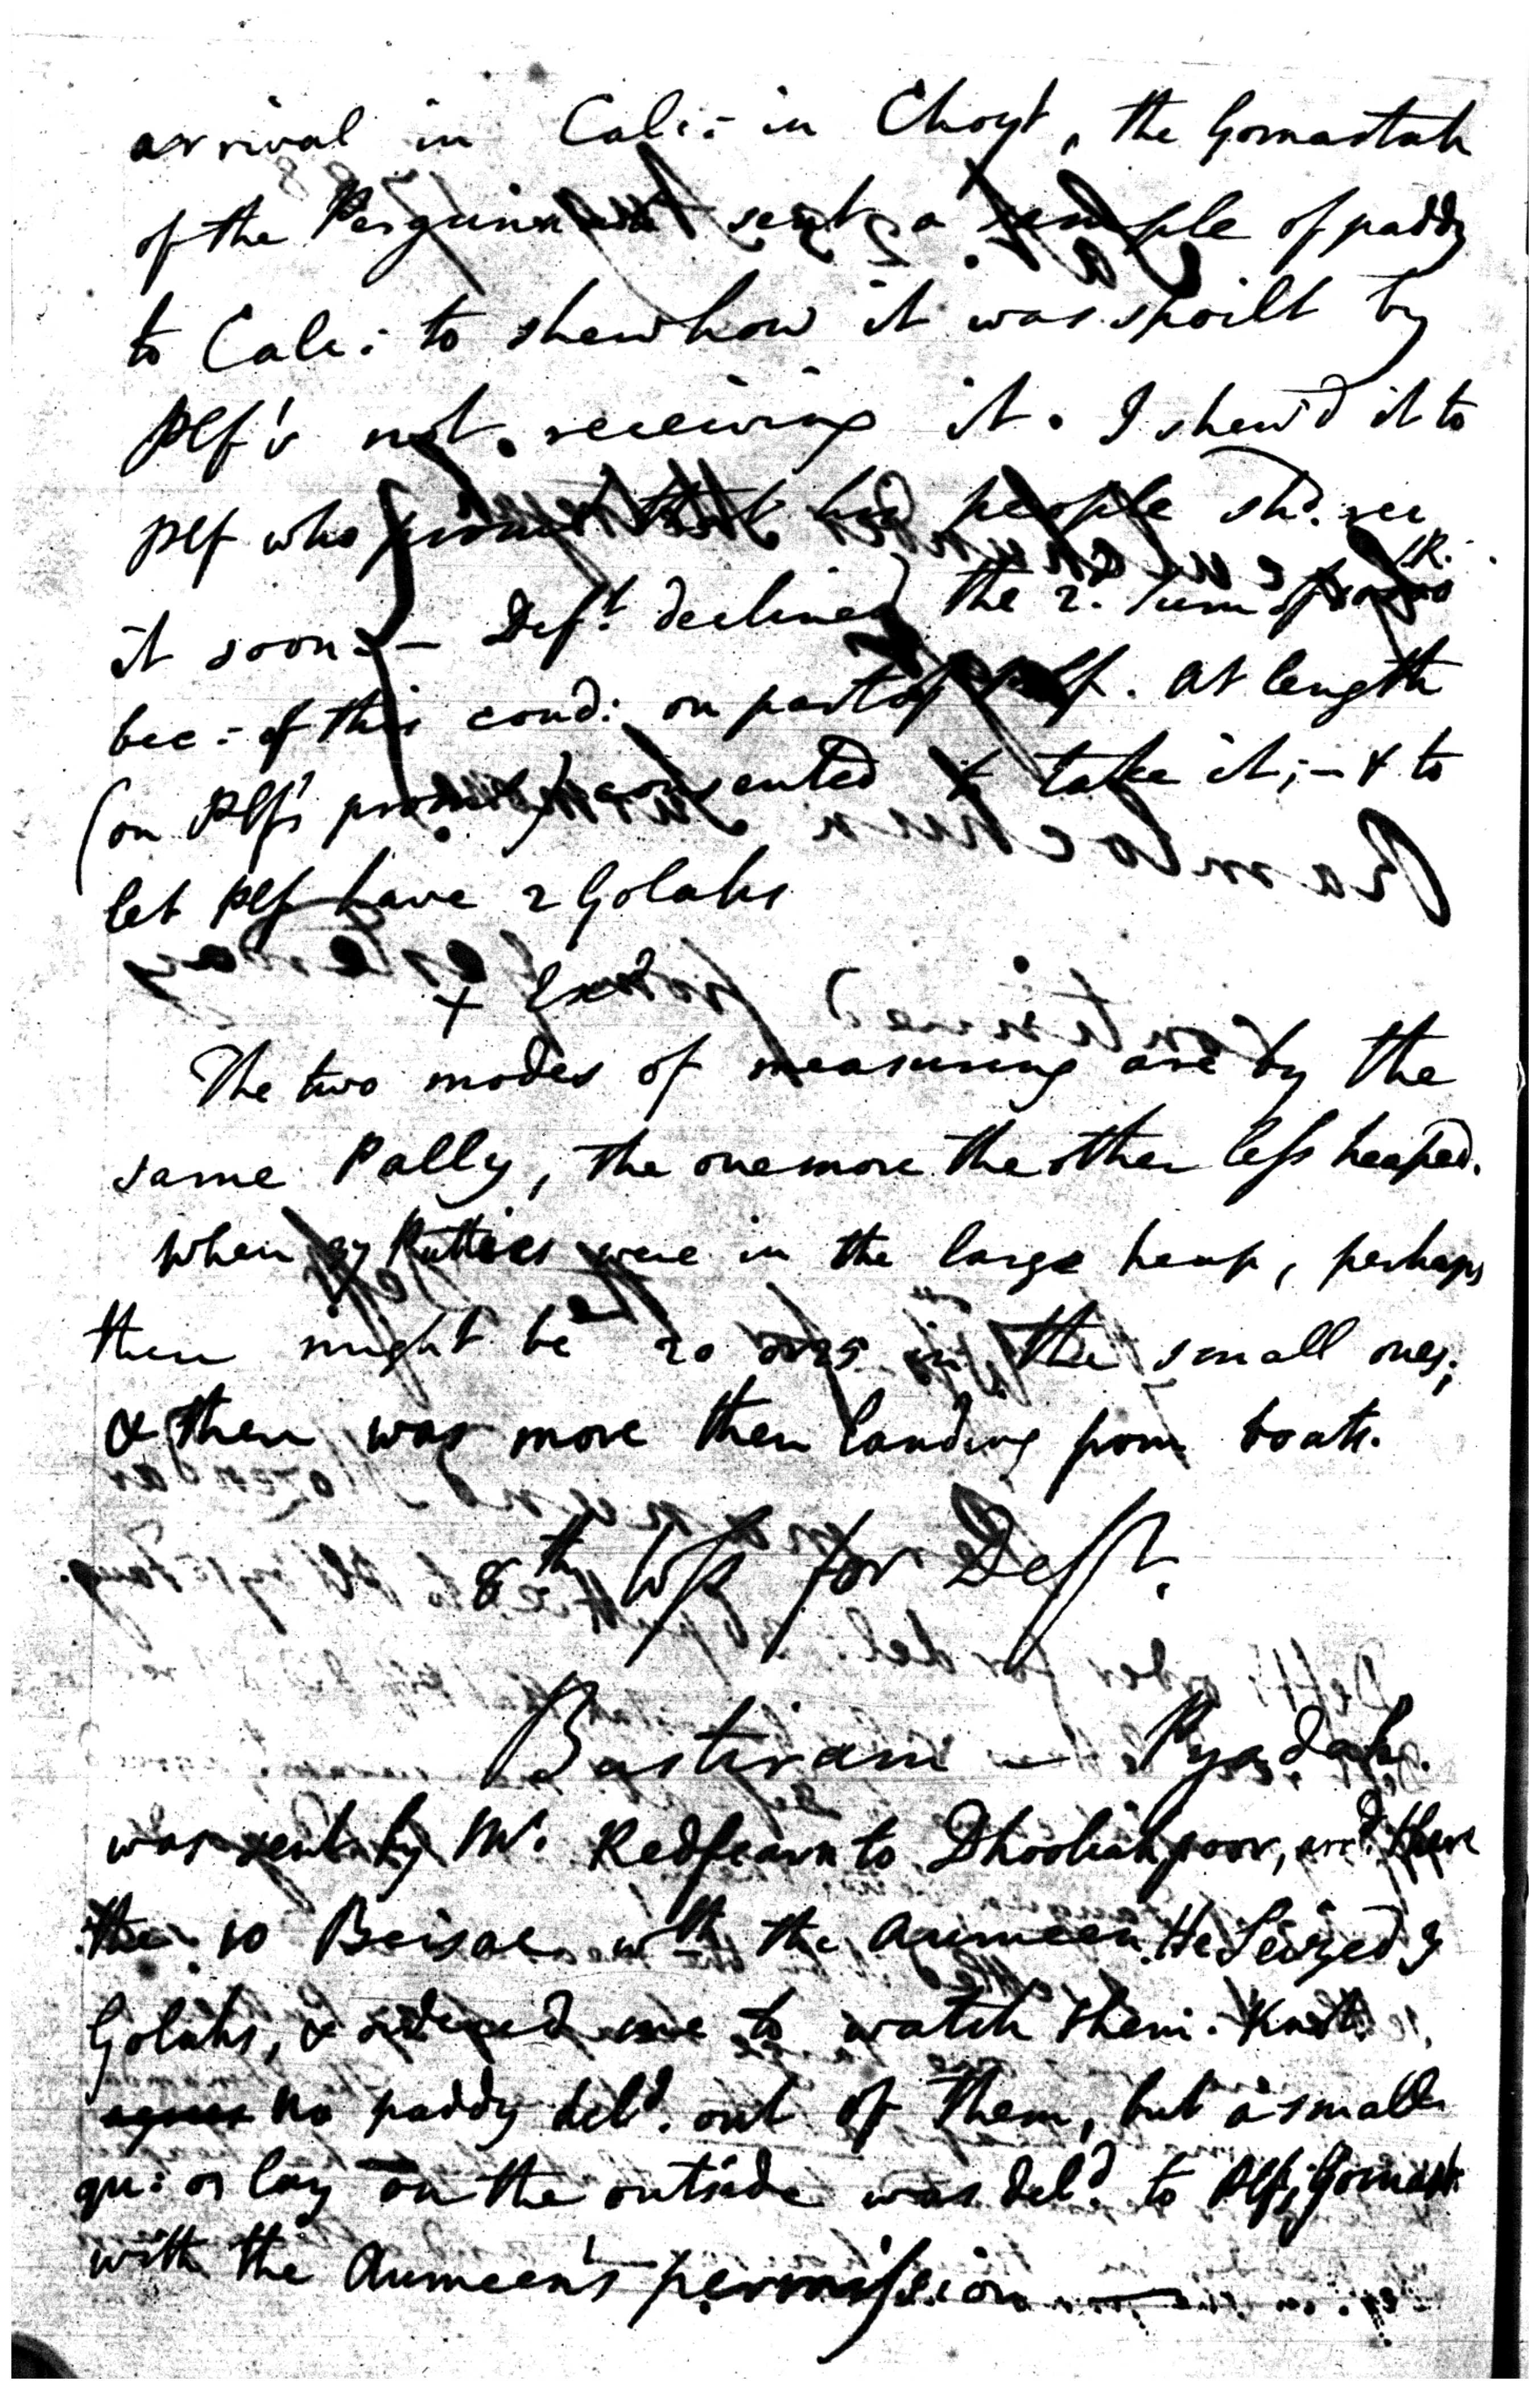 arrival in Calc:- in Choyt, the Gomastah
of the Pergunnah sent a sample of paddy
to Calc: to shew how it was spoilt by
Plf's not receiving it. I shew'd it to
Plf who promised that his people shd. rec
it soon - Deft. declined the 2. sum of
bec:- of this cond: on part of Plf. At length
(on Plf's promise) consented to take it; - & to
let Plf have 2 Golahs
x Exd
The two modes of measuring are by the
same Pally, the one more the other less heaped.
When 27 Putties were in the large heap, perhaps
there might be 20 or 25 in the small ones;
& there was more then landing from boats.
8th Wss for Deft.
Bustiram - Pyadah.
was sent by Mr. Redfearn to Dhooliahpoor, arrd there
the 10 Beisac with the Aumeen. He Seized 9
Golahs, & ordered me to watch them.
no paddy deld. out of them, but a small
qu: or lay on the outside was deld. to Plf's Gomast
with the Aumeen's permission